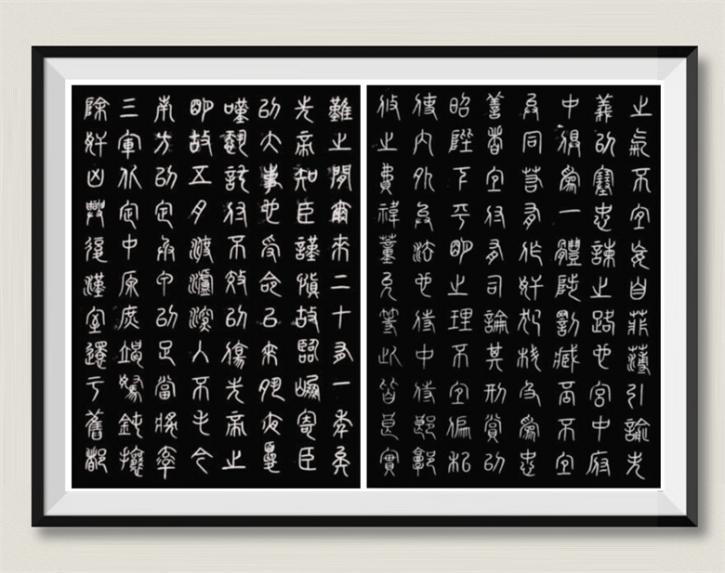 之氣不宜妄自菲薄引諭失
義以塞忠諫之路也宮中府
中俱為一體陟罰臧否不宜
異同若有作奸犯科及為忠
善者宜付有司論其刑賞以
昭陛下平明之理不宜偏私
使內外異法也侍中侍郎郭
攸之費禕董允等此皆良實
難之間爾來二十有一年矣
先帝知臣謹慎故臨崩寄臣
以大事也受命以來夙夜憂
嘆恐託付不效以傷先帝之
明故五月渡瀘深入不毛今
南方已定兵甲已足當獎率
三軍北定中原庶竭駑鈍攘
除奸凶興復漢室還于舊都